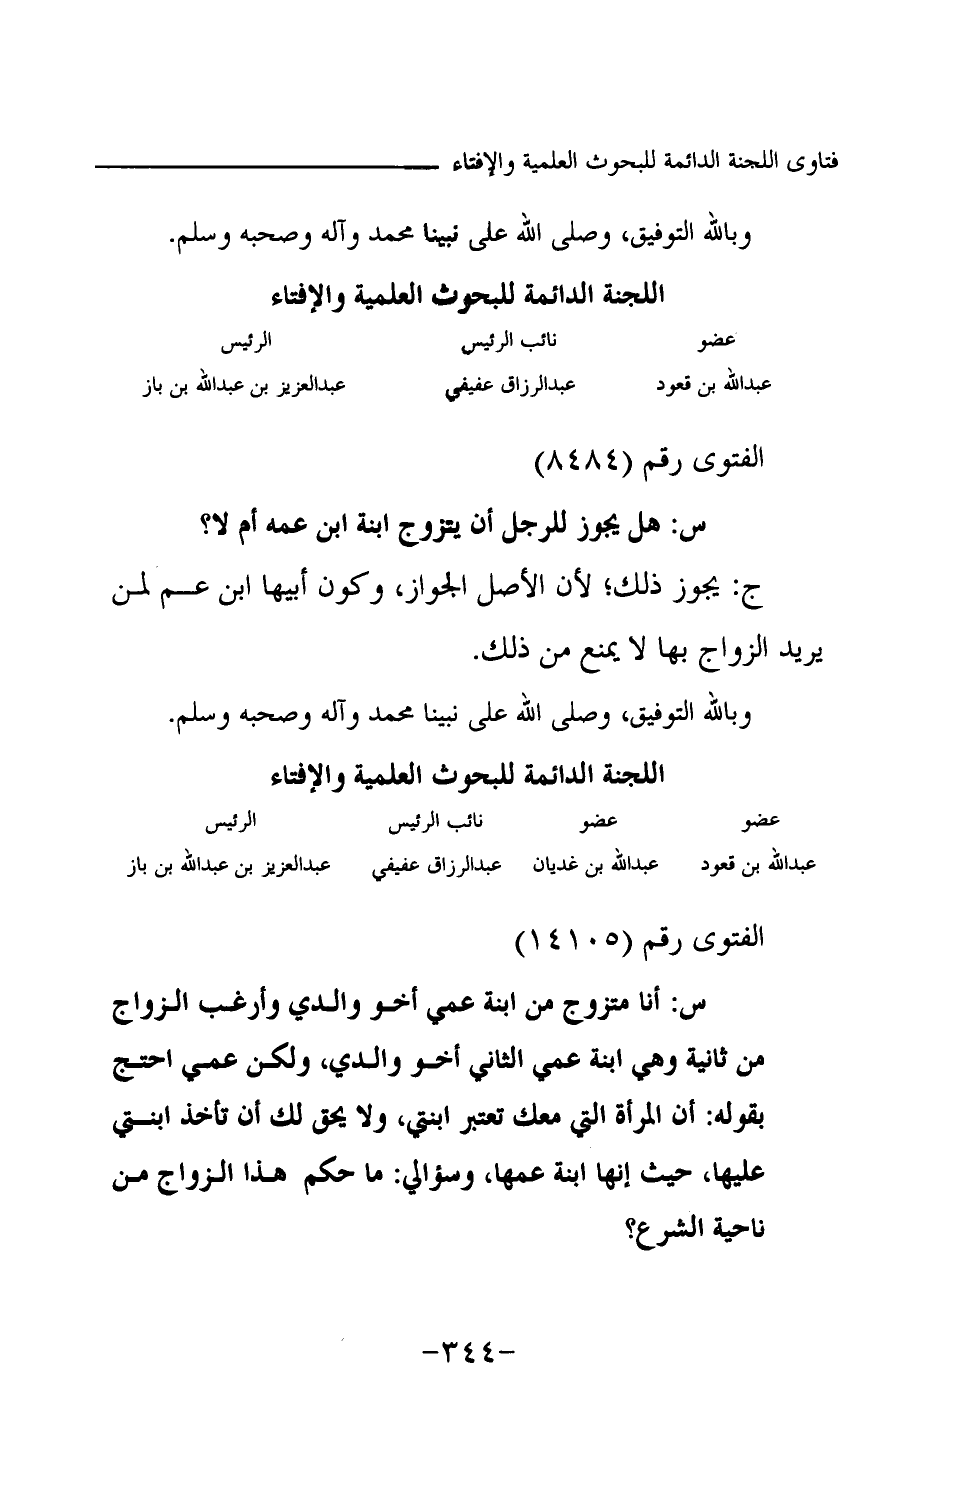 فتاوى اللجنة الدائمة للبحوث العلمية والإفتاء
وبالله التوفيق، وصلى الله على نبينا محمد وآله وصحبه وسلم.
اللجنة الدائمة للبحوث العلمية والإفتاء
عضو نائب الرئيس الرئيس
عبدالله بن قعود عبدالرزاق عفيفي عبدالعزيز بن عبدالله بن باز
الفتوى رقم (٨٤٨٤)
س: هل يجوز للرجل أن يتزوج ابنة ابن عمه أم لا؟
ج: يجوز ذلك؛ لأن الأصل الجواز، وكون أبيها ابن عـــم لمـن
يريد الزواج بها لا يمنع من ذلك.
وبالله التوفيق، وصلى الله على نبينا محمد وآله وصحبه وسلم.
اللجنة الدائمة للبحوث العلمية والإفتاء
عضو عضو نائب الرئيس الرئيس
عبدالله بن قعود عبدالله بن غديان عبدالرزاق عفيفي عبدالعزيز بن عبدالله بن باز
الفتوى رقم (١٤١٠٥)
س: أنا متزوج من ابنة عمي أخـو والـدي وأرغـب الـزواج
من ثانية وهي ابنة عمي الثاني أخـو والـدي، ولكـن عمـي احتـج
بقوله: أن المرأة التي معك تعتبر ابنتي، ولا يحق لك أن تأخذ ابنـتي
عليها، حيث إنها ابنة عمها، وسؤالي: ما حكم هـذا الـزواج مـن
ناحية الشرع؟
-٣٤٤-